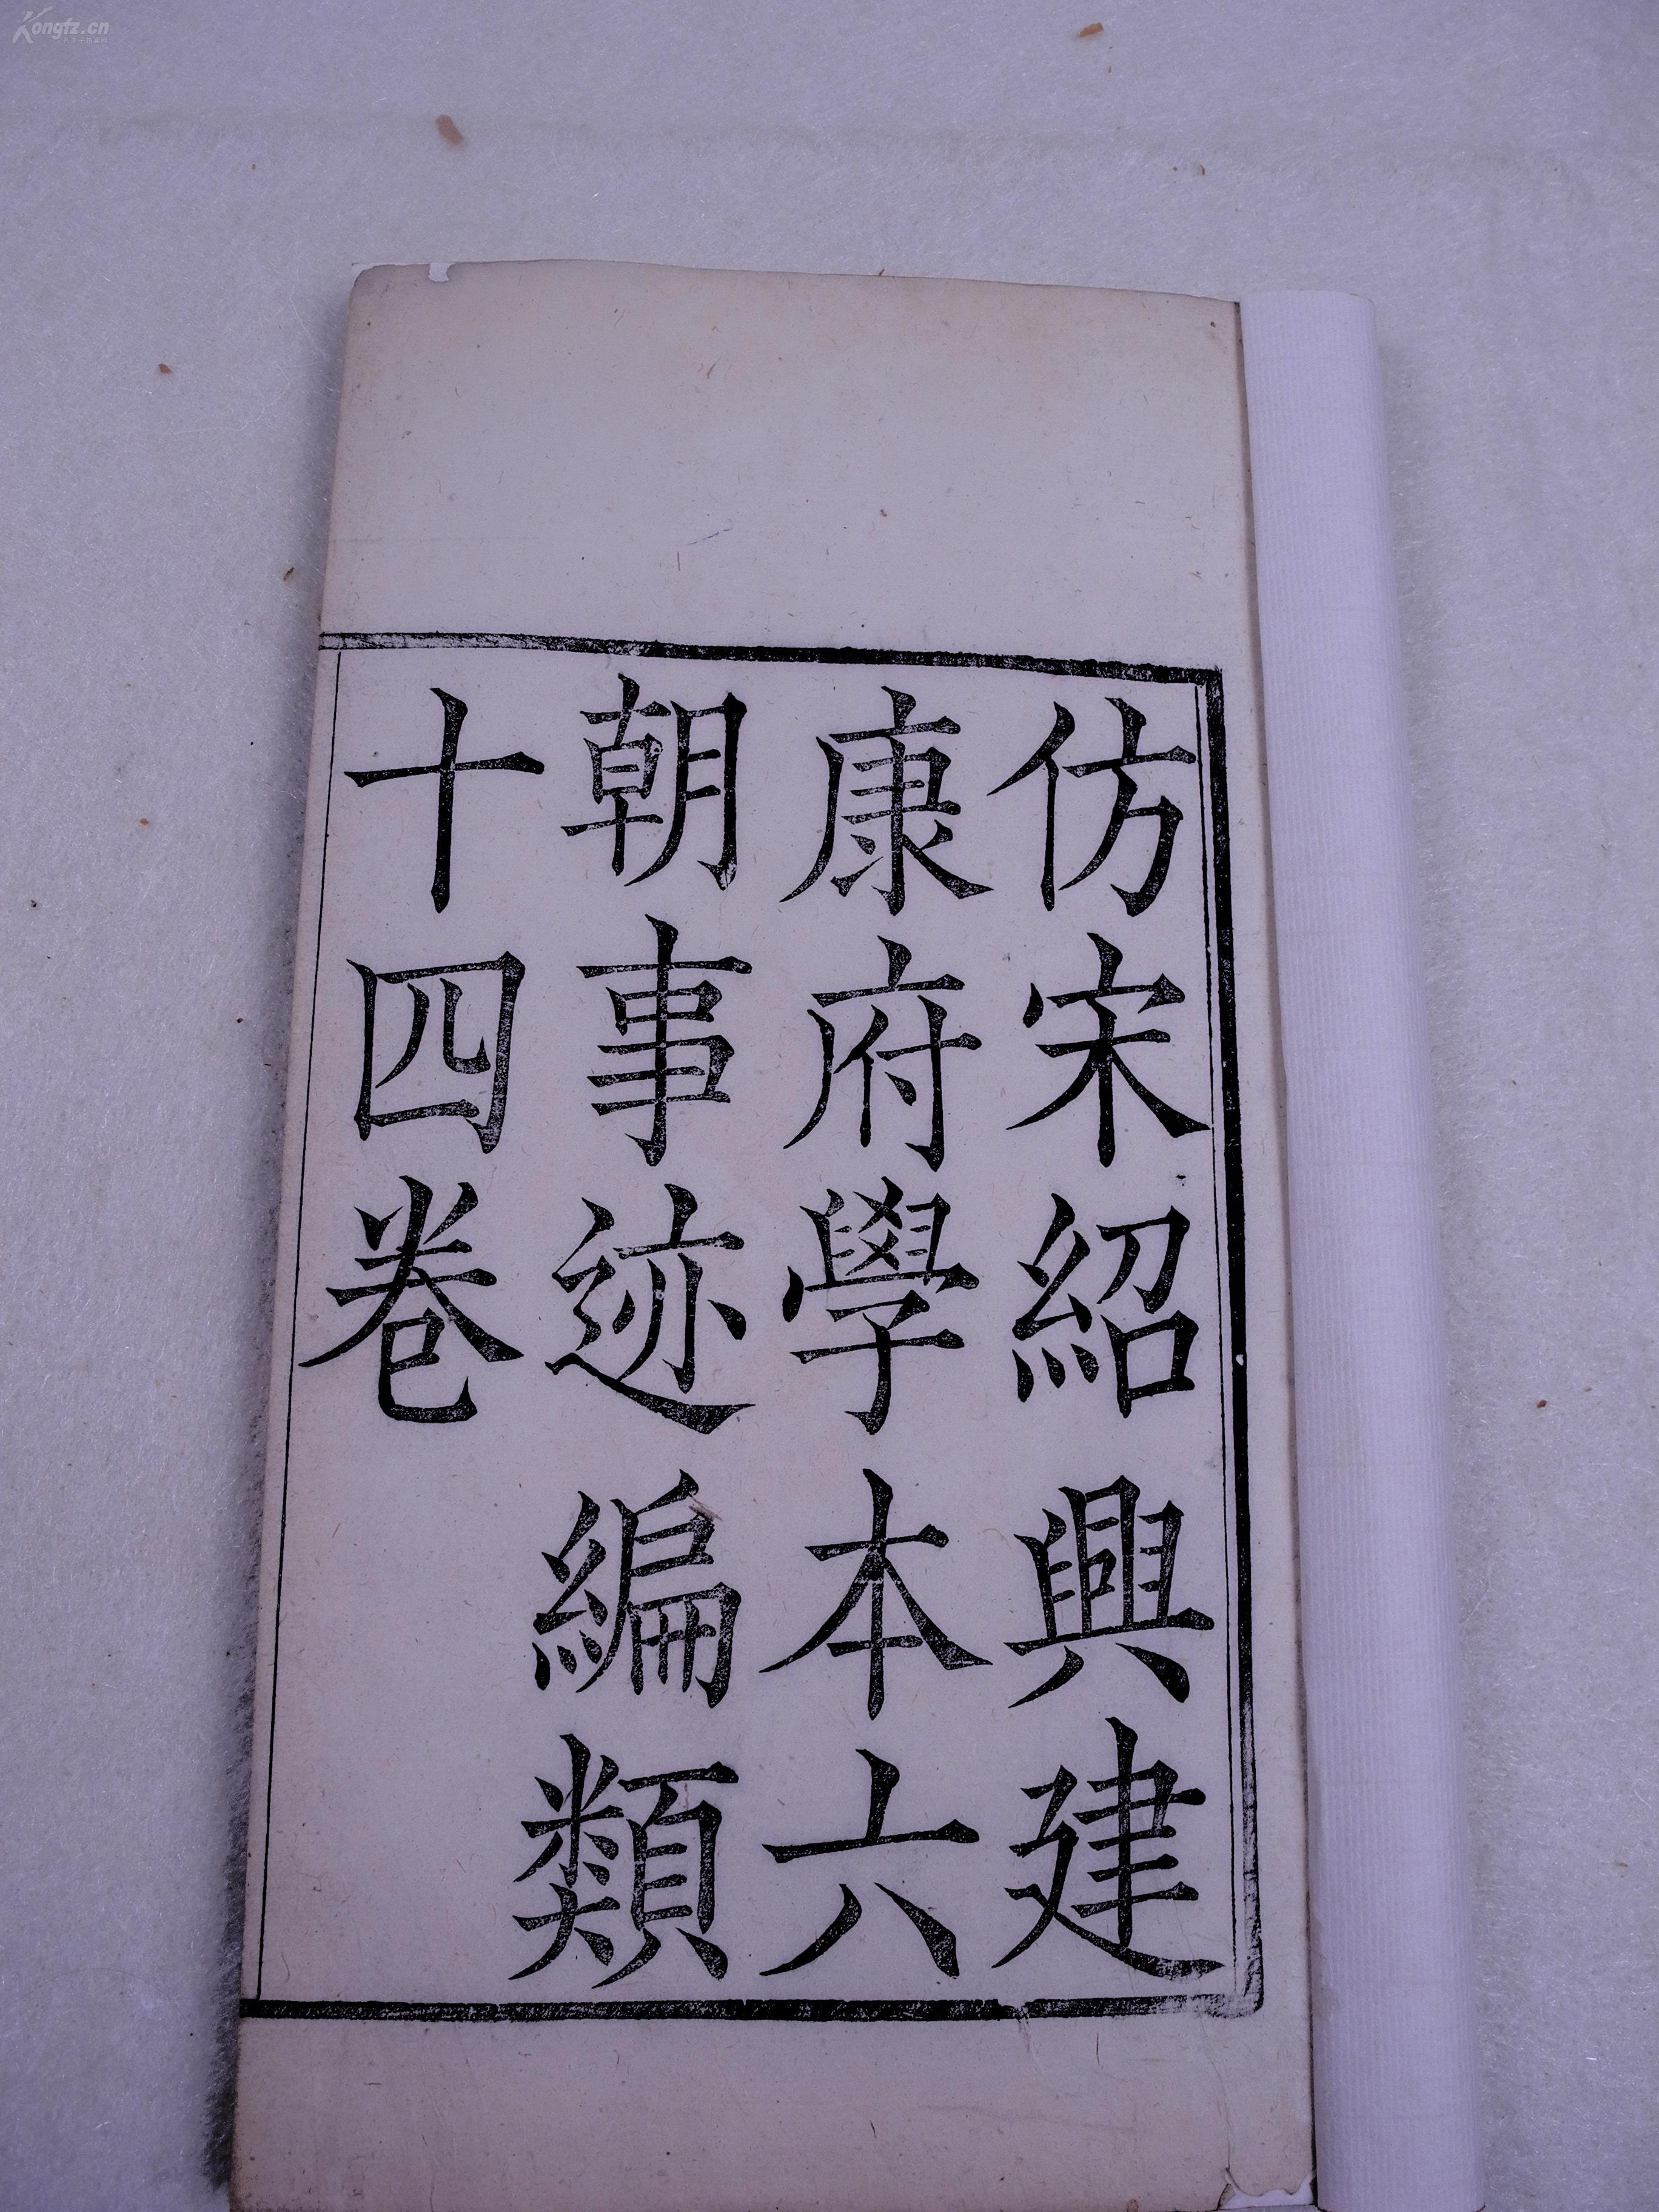 Kongfz.cn
仿宋紹興建
康府學本六
朝事迹編類
十四卷